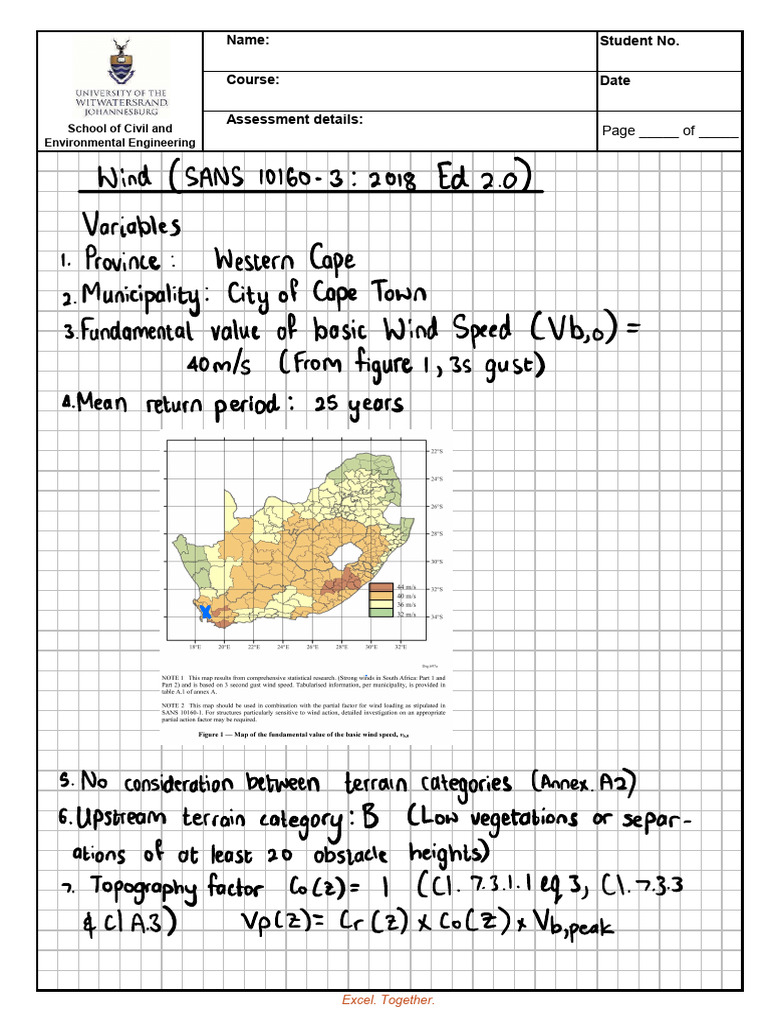 UNIVERSITY OF THE
WITWATERSRAND,
JOHANNESBURG
School of Civil and
Environmental Engineering
Name:
Student No.
Course:
Date
Assessment details:
Page _____ of _____
Wind (SANS 10160-3: 2018 Ed 2.0)
Variables
1. Province: Western Cape
2. Municipality: City of Cape Town
3. Fundamental value of basic Wind Speed (Vb,0) =
40m/s (From figure 1, 3s gust)
4. Mean return period: 25 years
22°S
24°S
26°S
28°S
30°S
32°S
34°S
44 m/s
40 m/s
36 m/s
32 m/s
18°E 20°E 22°E 24°E 26°E 28°E 30°E 32°E
NOTE 1 This map results from comprehensive statistical research. (Strong winds in South Africa: Part 1 and
Part 2) and is based on 3 second gust wind speed. Tabularised information, per municipality, is provided in
table A.1 of annex A.
NOTE 2 This map should be used in combination with the partial factor for wind loading as stipulated in
SANS 10160-1. For structures particularly sensitive to wind action, detailed investigation on an appropriate
partial action factor may be required.
Figure 1 — Map of the fundamental value of the basic wind speed, vb,0
5. No consideration between terrain categories (Annex. A2)
6. Upstream terrain category: B (Low vegetations or separ-
ations of at least 20 obstacle heights)
7. Topography factor Co(z) = 1 (Cl. 7.3.1.1 eq 3, Cl. 7.3.3
& Cl A.3) Vp(z) = Cr(z) x Co(z) x Vb,peak
Excel. Together.